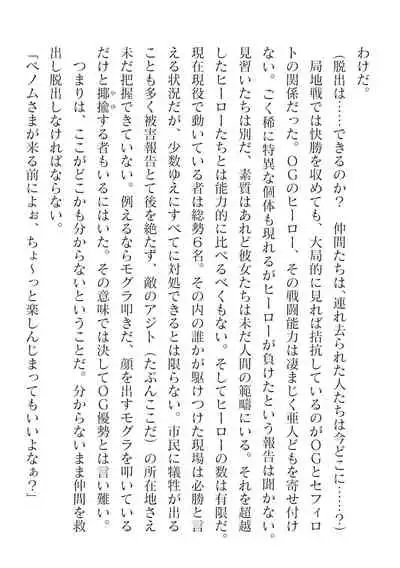 わけだ。
（脱出は……できるのか？　仲間たちは、連れ去られた人たちは今どこに……？）
局地戦では快勝を収めても、大局的に見れば拮抗しているのがＯＧとセフィロ
トの関係だった。ＯＧのヒーロー、その戦闘能力は凄まじく亜人どもを寄せ付け
ない。ごく稀に特異な個体も現れるがヒーローが負けたという報告は聞かない。
見習いたちは別だ、素質はあれど彼女たちは未だ人間の範疇にいる。それを超越
したヒーローたちとは能力的に比べるべくもない。そしてヒーローの数は有限だ。
現在現役で動いている者は総勢６名。その内の誰かが駆けつけた現場は必勝と言
える状況だが、少数ゆえにすべてに対処できるとは限らない。市民に犠牲が出る
ことも多く被害報告とて後を絶たず、敵のアジト（たぶんここだ）の所在地さえ
未だ把握できていない。例えるならモグラ叩きだ、顔を出すモグラを叩いている
だけと揶揄する者もいるにはいた。その意味では決してＯＧ優勢とは言い難い。
つまりは、ここがどこかも分からないということだ。分からないまま仲間を救
出し脱出しなければならない。
「ベノムさまが来る前によぉ、ちょ～っと楽しんじまってもいいよなぁ？」